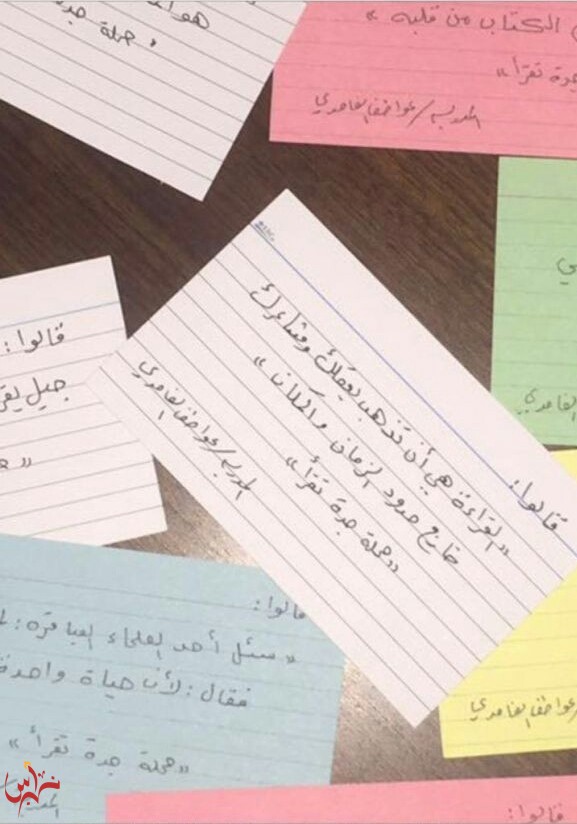 هوا
« حملة جدة
الكتاب من قلبه »
جدة تقرأ »
المدربة/عواطف الغامدي
قالوا:
« القراءة هي أن تذهب بعقلك ومشاعرك
خارج حدود الزمان والمكان »
« حملة جدة تقرأ »
المدربة/عواطف الغامدي
قالوا:
جيل يقر
الغامدي
قالوا:
« سئل أحد العلماء العباقرة:
فقال: لأن حياة واحدة
« حملة جدة تقرأ »
عواطف الغامدي
قالوا: